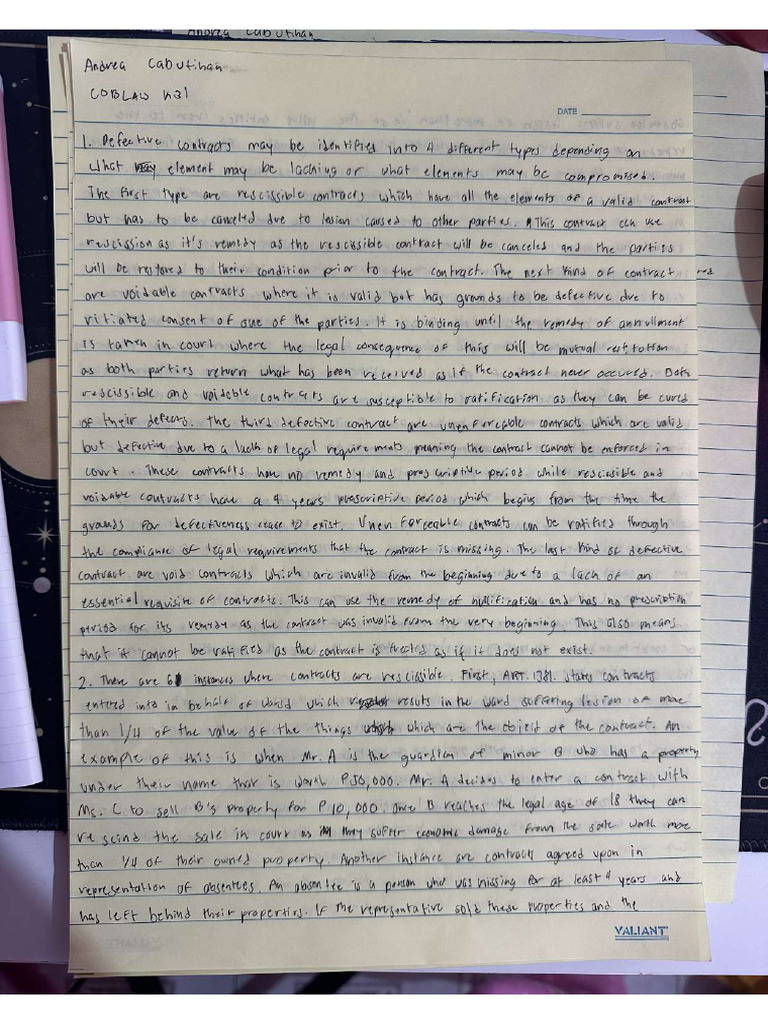 Andrea Cabutihan
Andrea Cabutihan
COBLAW K31
DATE
1. Defective contracts may be identified into 4 different types depending on
what element may be lacking or what elements may be compromised.
The first type are rescissible contracts which have all the elements of a valid contract
but has to be canceled due to lesion caused to other parties. This contract can use
rescission as it's remedy as the rescissible contract will be canceled and the parties
will be restored to their condition prior to the contract. The next kind of contract
are voidable contracts where it is valid but has grounds to be defective due to
vitiated consent of one of the parties. It is binding until the remedy of annullment
is taken in court where the legal consequence of this will be mutual restitution
as both parties return what has been received as if the contract never occured. Both
rescissible and voidable contracts are susceptible to ratification as they can be cured
of their defects. The third defective contract are unenforceable contracts which are valid
but defective due to a lack of legal requirements meaning the contract cannot be enforced in
court. These contracts have no remedy and prescriptive period while rescissible and
voidable contracts have a 4 years prescriptive period which begins from the time the
grounds for defectiveness cease to exist. Unenforceable contracts can be ratified through
the compliance of legal requirements that the contract is missing. The last kind of defective
contract are void contracts which are invalid from the beginning due to a lack of an
essential requisite of contracts. This can use the remedy of nullification and has no prescription
period for its remedy as the contract was invalid from the very beginning. This also means
that it cannot be ratified as the contract is treated as if it does not exist.
2. There are 6 instances where contracts are rescissible. First, ART. 1381. states contracts
entered into in behalf of ward which results in the ward suffering lesion of more
than 1/4 of the value of the things which are the object of the contract. An
example of this is when Mr. A is the guardian of minor B who has a property
under their name that is worth P50,000. Mr. A decides to enter a contract with
Ms. C to sell B's property for P10,000. Once B reaches the legal age of 18 they can
rescind the sale in court as they suffer economic damage from the sale worth more
than 1/4 of their owned property. Another instance are contracts agreed upon in
representation of absentees. An absentee is a person who was missing for at least 4 years and
has left behind their properties. If the representative sold these properties and the
VALIANT